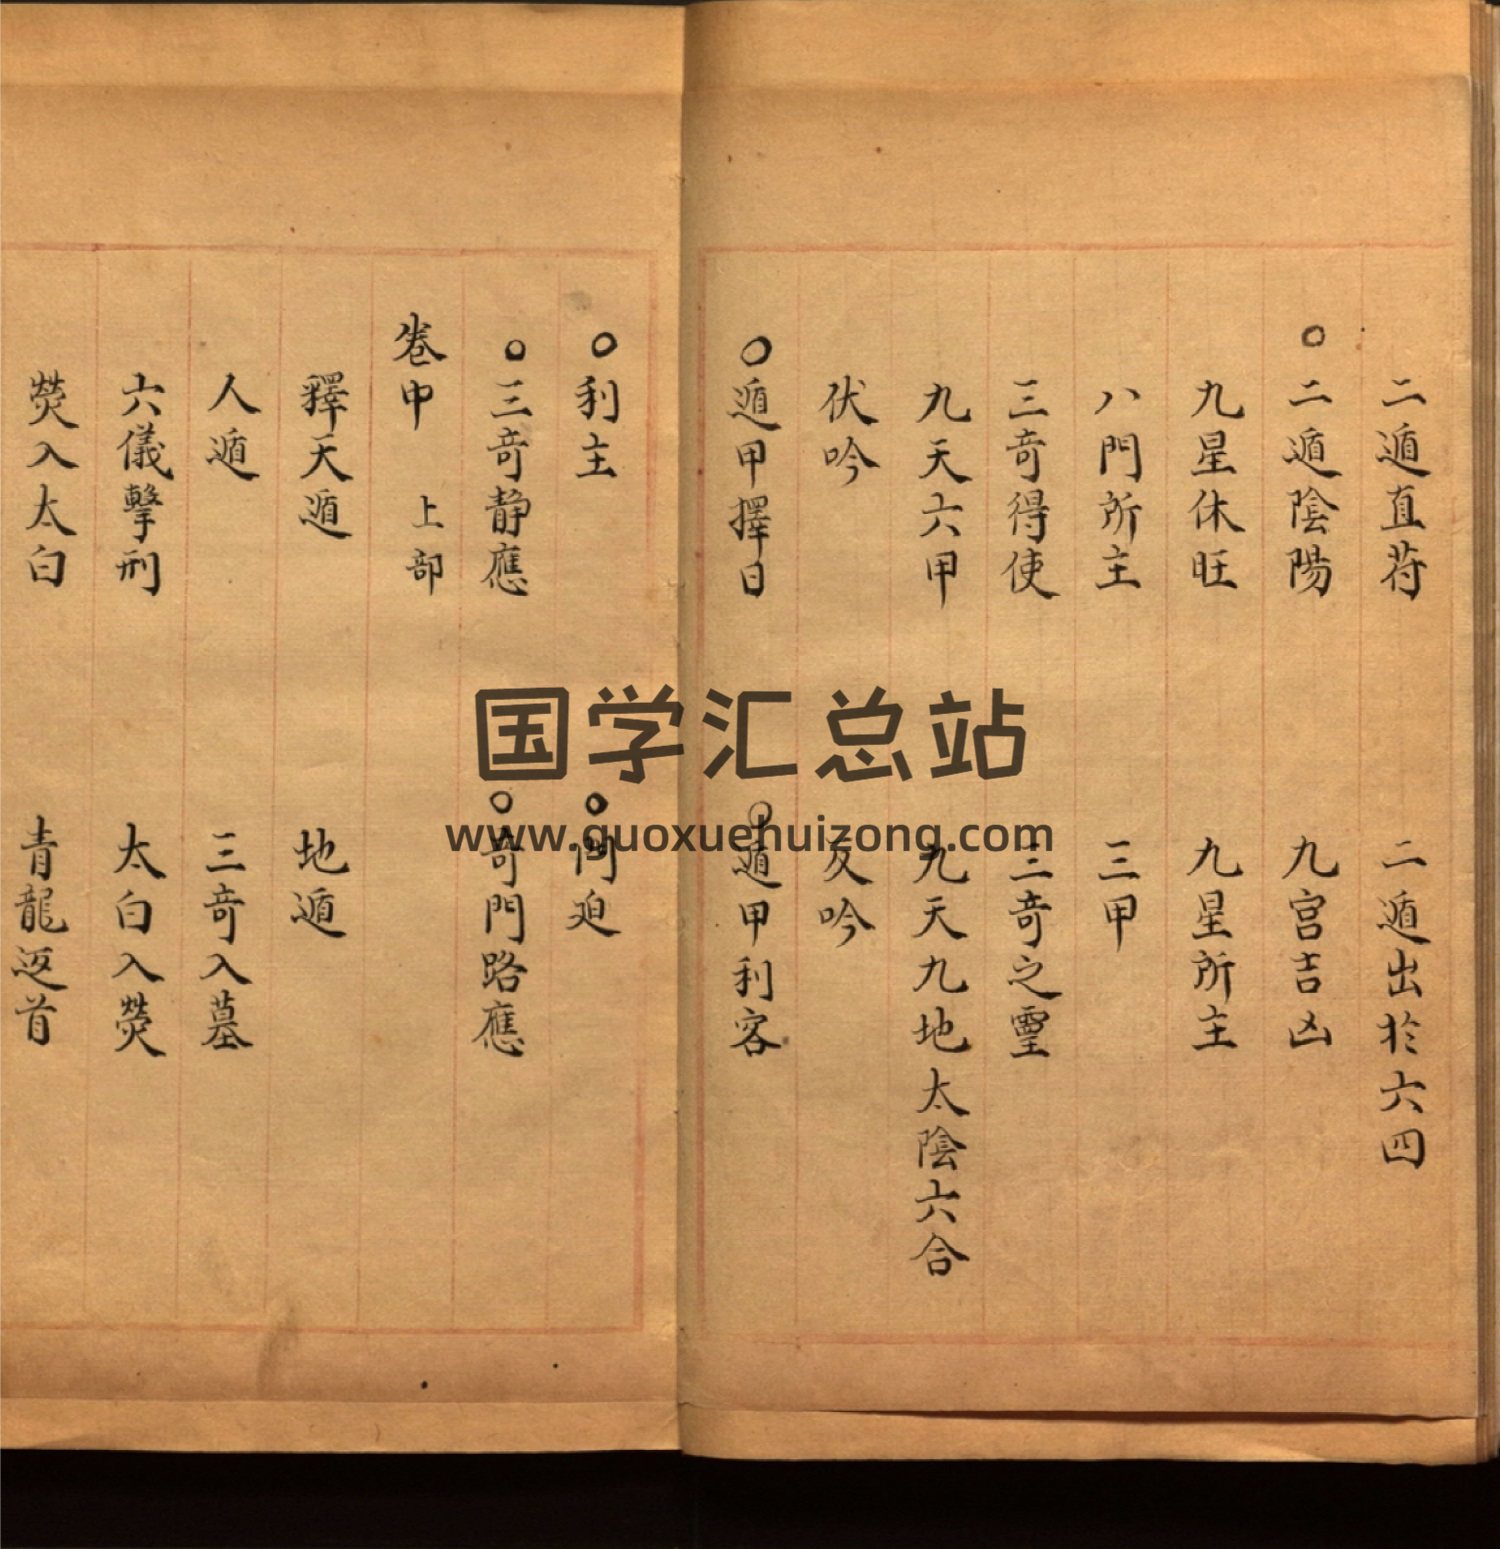 二遁直苻　二遁出於六四
○二遁陰陽　九宮吉凶
九星休旺　九星所主
八門所主　三甲
三奇得使　三奇之靈
九天六甲　九天九地太陰六合
伏吟　反吟
○遁甲擇日　○遁甲利客
○利主　○門迫
○三奇静應　○奇門路應
卷中　上部
釋天遁　地遁
人遁　三奇入墓
六儀擊刑　太白入熒
熒入太白　青龍返首
国学汇总站
www.guoxuehuizong.com